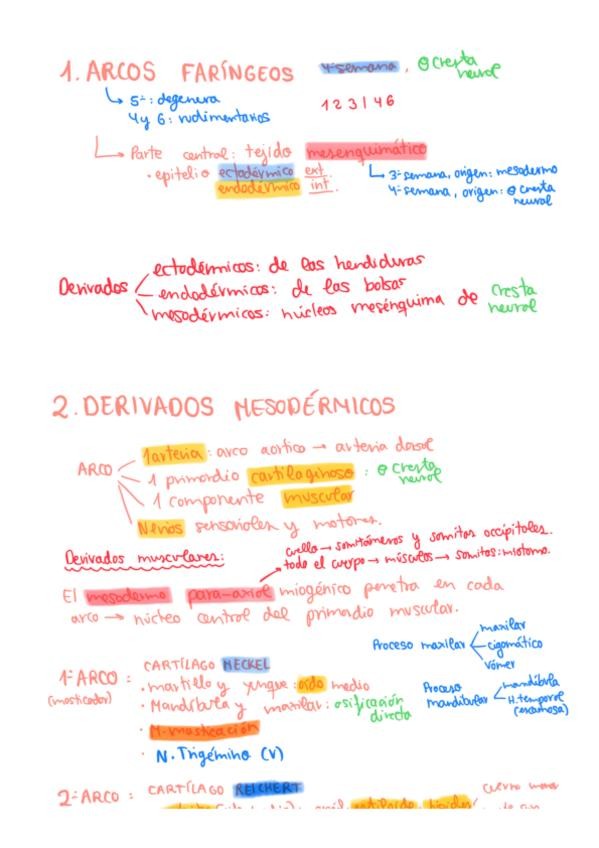 1. ARCOS FARÍNGEOS 4ª semana, ⊕ Cresta neural
↳ 5º: degenera
4 y 6: rudimentarios
1 2 3 | 4 6
↳ Parte central: tejido mesenquimático
· epitelio ectodérmico ext.
endodérmico int.
↳ 3ª semana, origen: mesodermo
4ª semana, origen: ⊕ cresta neural
Derivados
ectodérmicos: de las hendiduras
endodérmicos: de las bolsas
mesodérmicos: núcleos mesénquima de cresta neural
2. DERIVADOS MESODÉRMICOS
ARCO
1 arteria: arco aórtico → arteria dorsal
1 primordio cartilaginoso: ⊕ cresta neural
1 componente muscular
Nervios sensoriales y motores.
Derivados musculares:
cuello → somitómeros y somitas occipitales.
todo el cuerpo → músculos → somitas: miotomo.
El mesodermo para-axial miogénico penetra en cada
arco → núcleo central del primordio muscular.
Proceso maxilar
maxilar
cigomático
vómer
1º ARCO:
(masticador)
CARTÍLAGO MECKEL
· martillo y yunque: oído medio
· Mandíbula y maxilar: osificación directa
· M. masticación
· N. Trigémino (V)
Proceso mandibular
mandíbula
H. temporal
(escamosa)
2º ARCO: CARTÍLAGO REICHERT